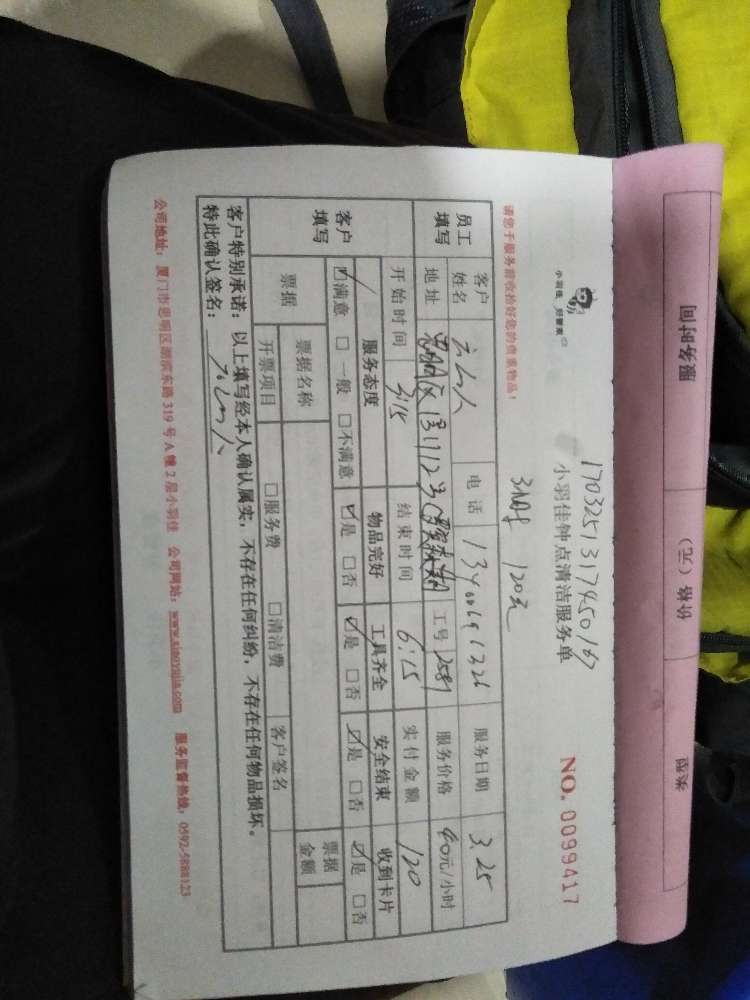 服务时间
价格（元）
类型
170325131745016>
小羽佳 好管家
小羽佳钟点清洁服务单
NO. 0099417
请您于服务前收拾好您的贵重物品！
3小时 120元
员工填写
客户姓名
电话
服务日期 3.25
地址
工号 2581
服务价格 40元/小时
开始时间 3:15
结束时间 6:15
实付金额 120
客户填写
服务态度
物品完好
工具齐全
安全结束
收到卡片
☑满意 □一般 □不满意
☑是 □否
☑是 □否
☑是 □否
☑是 □否
票据
票据名称
票据金额
开票项目
□服务费 □清洁费
客户签名
客户特别承诺：以上填写经本人确认属实，不存在任何纠纷，不存在任何物品损坏。
特此确认签名：
公司地址：厦门市思明区湖滨东路 319 号 A 幢 2 层小羽佳 公司网站：www.xiaoyujia.com 服务监督热线：0592-5888123